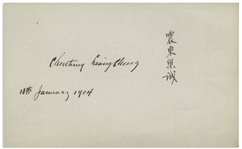 震東梁誠
Chentung Liang Cheng
January 1904